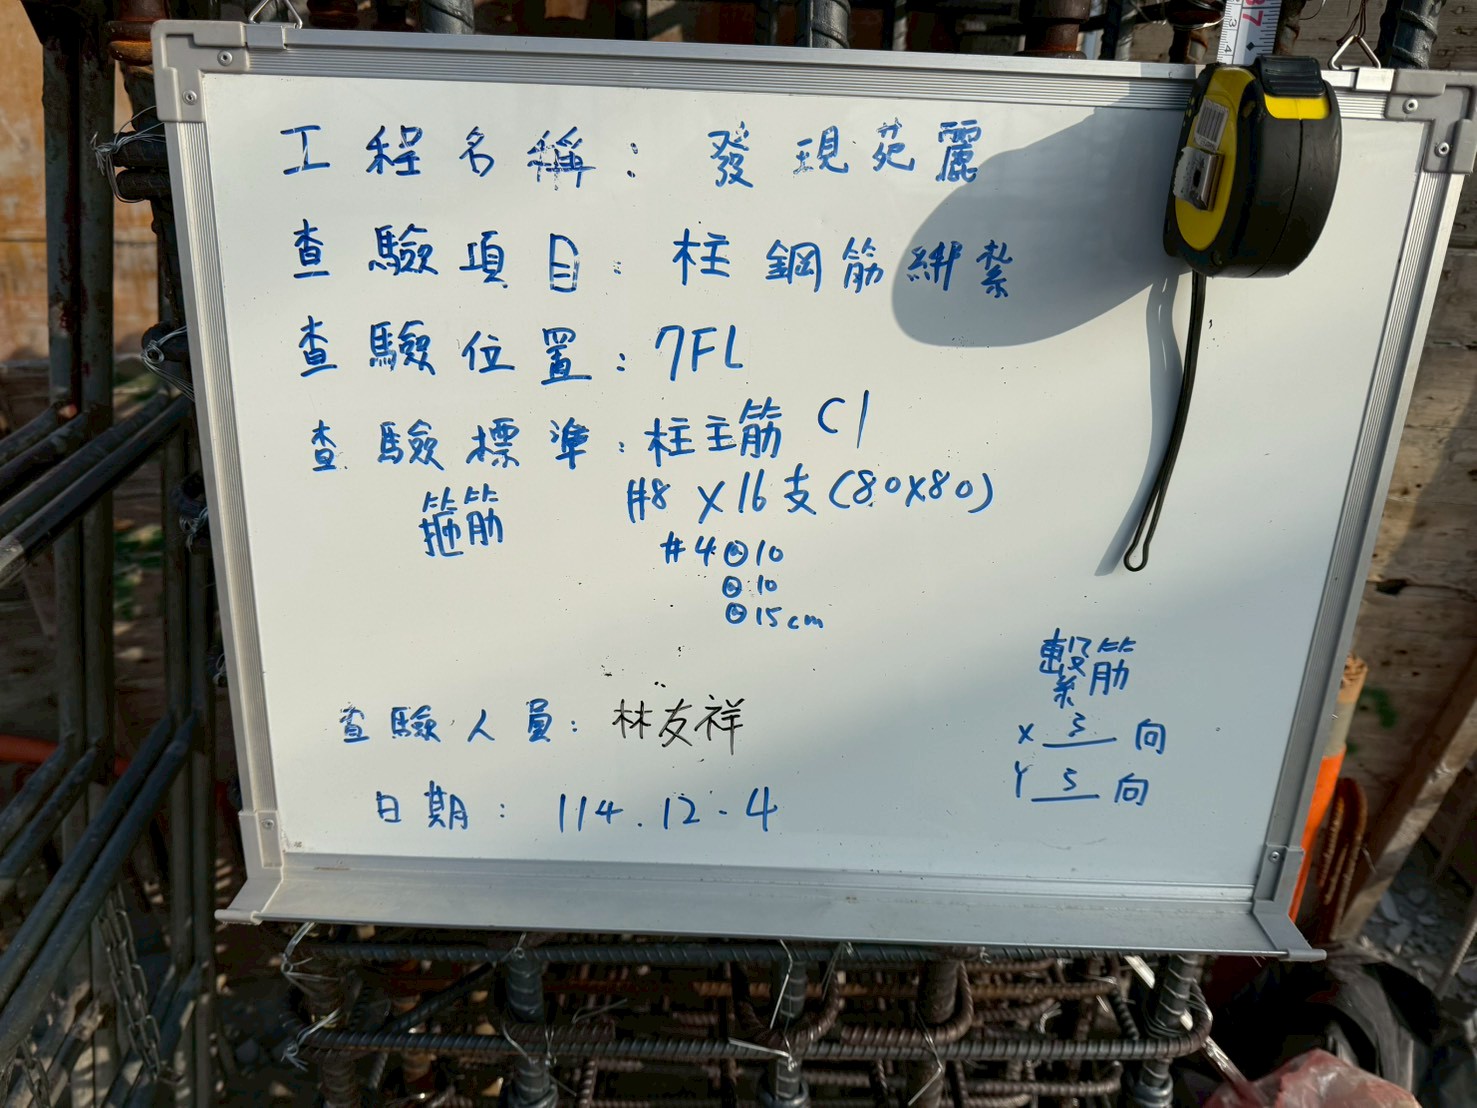 工程名稱：發現苑麗
查驗項目：柱鋼筋綁紮
查驗位置：7FL
查驗標準：柱主筋 C1
#8 X 16支(80X80)
箍筋
#4@10
@10
@15cm
繫筋
X 3 向
Y 3 向
查驗人員：林友祥
日期：114.12.4